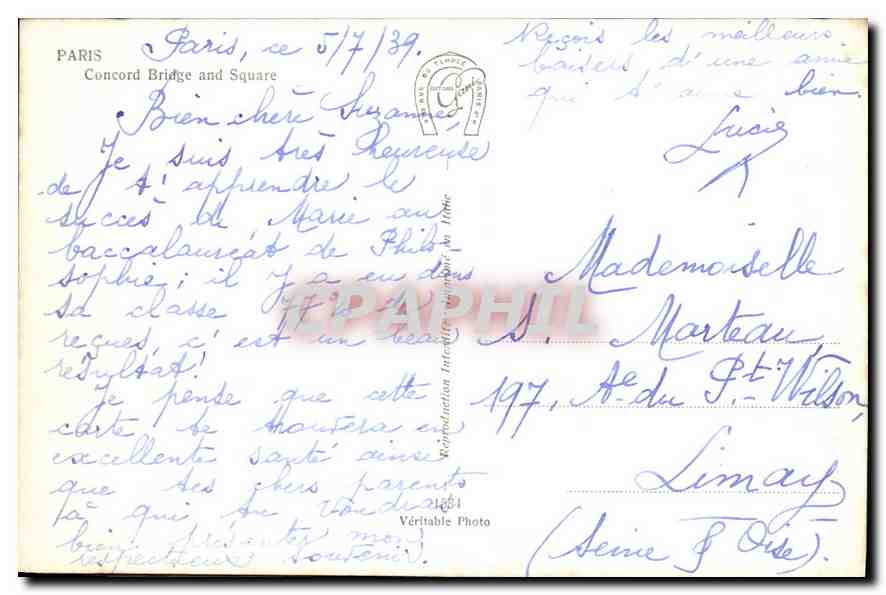 PARIS
Concord Bridge and Square
Paris, ce 5/7/39.
Bien chère Suzanne,
Je suis très heureuse
de t'apprendre le
succès de Marie au
baccalauréat de Philo-
sophie ; il y a eu dans
sa classe 77% de
reçues, c'est un beau
résultat!
Je pense que cette
carte te trouvera en
excellente santé ainsi
que tes chers parents
à qui tu voudras
bien présenter mon
respectueux souvenir.
Reçois les meilleurs
baisers d'une amie
qui t'aime bien.
Lucie
Mademoiselle
S. Marteau,
197, Ae du Pt. Wilson,
Limay
(Seine & Oise).
RUE DU TEMPLE
PARIS
Reproduction Interdite - Imprimé en Italie
1534
Véritable Photo
CPAPHIL